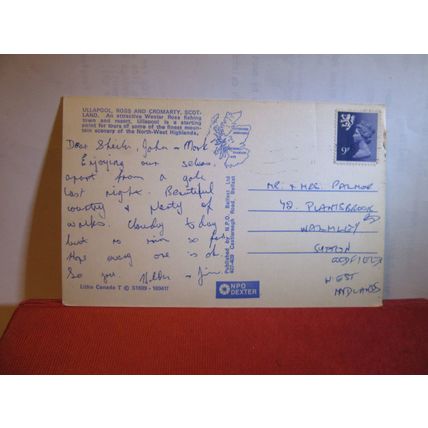 ULLAPOOL, ROSS AND CROMARTY, SCOT-
LAND. An attractive Wester Ross fishing
town and resort, Ullapool is a starting
point for tours of some of the finest moun-
tain scenery of the North-West Highlands.
Dear Sheila, John & Mark
Enjoying our selves,
apart from a gale
last night. Beautiful
country & plenty of
walks. Cloudy to day
but no rain so far.
Hope every one is ok.
So you. Hilda & Jim.
Litho Canada T © S1809 - 169417
Published by N.P.O. Belfast Ltd
Castlereagh Road, Belfast
NPO
DEXTER
9P
MR. & MRS. PALMOR
42 PLANTSBROOK
RD
WALMLEY
SUTTON
COLDFIELD
WEST
MIDLANDS